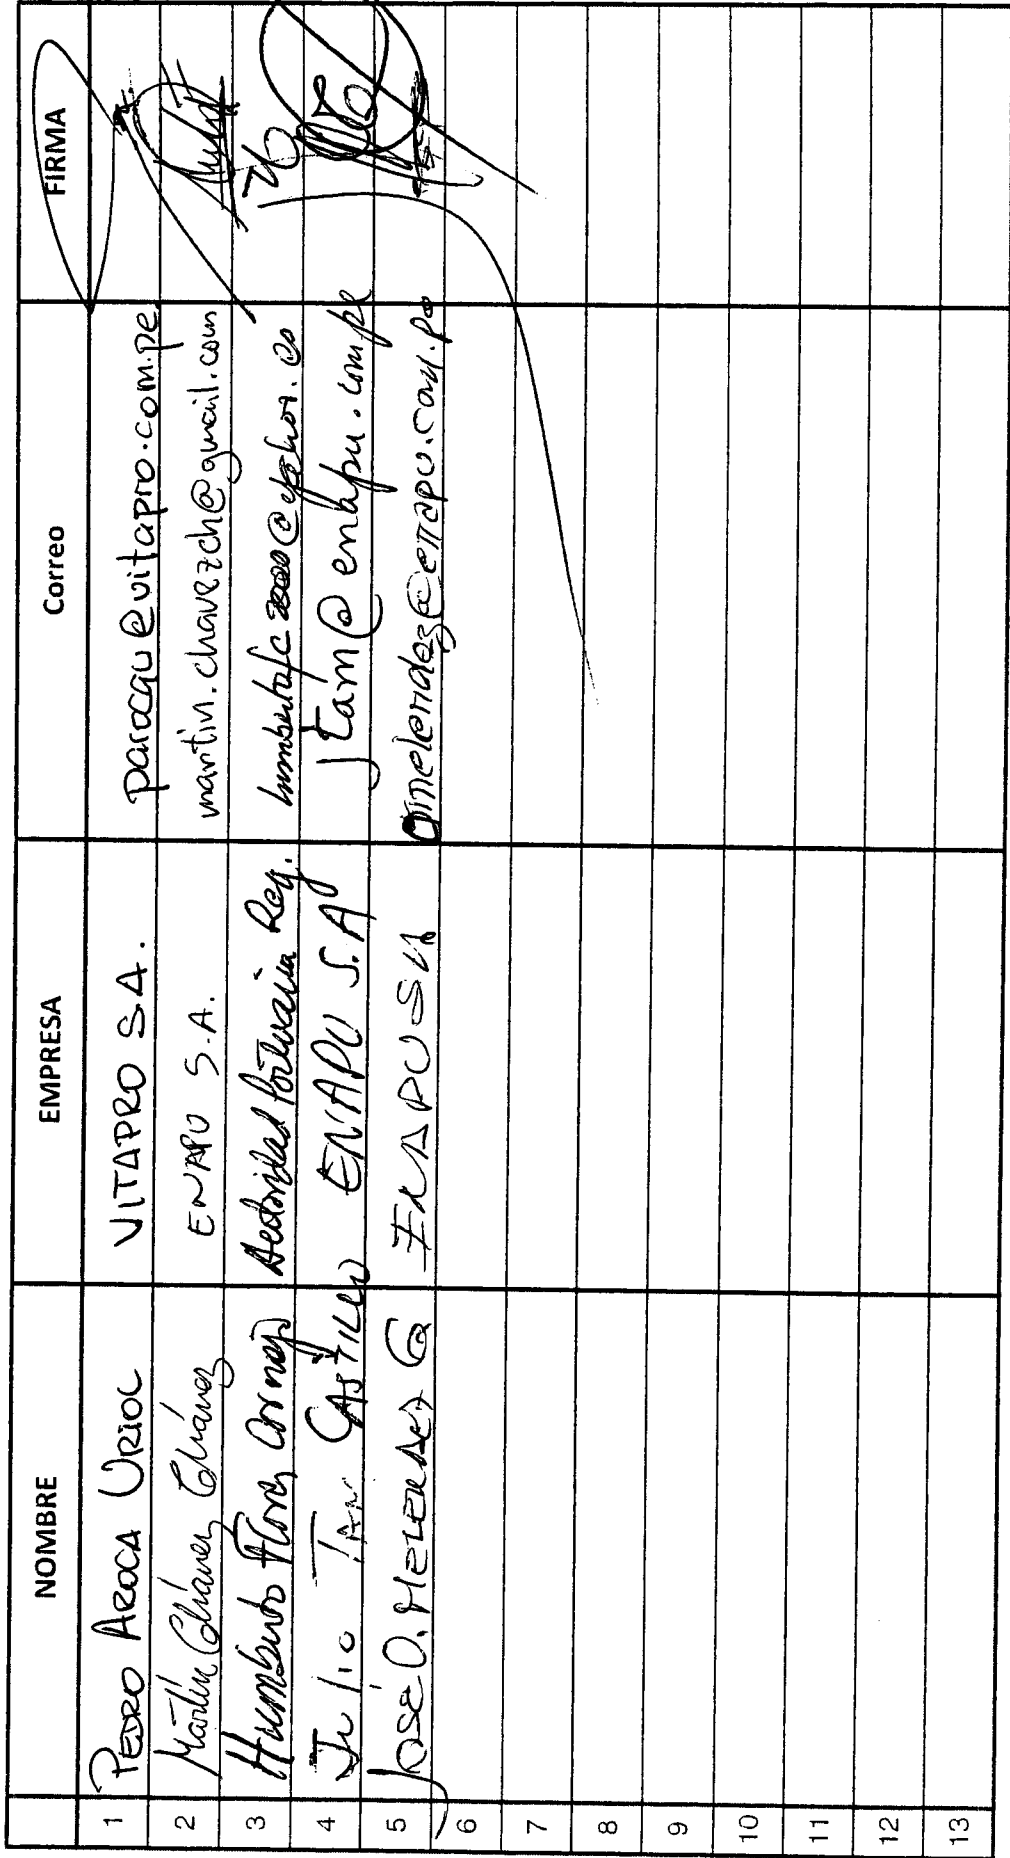 NOMBRE EMPRESA Correo FIRMA
1 PEDRO AROCA URIOL VITAPRO S.A. parocau@vitapro.com.pe
2 Martín Chávez Chávez ENAPU S.A. martin.chavezch@gmail.com
3 Humberto Flores Cornejo Autoridad Portuaria Reg.
4 Julio Tam CASTILLO ENAPU S.A jtam@enapu.com.pe
5 José O. MELENDEZ G ENAPU SA omelendez@enapu.com.pe
6
7
8
9
10
11
12
13